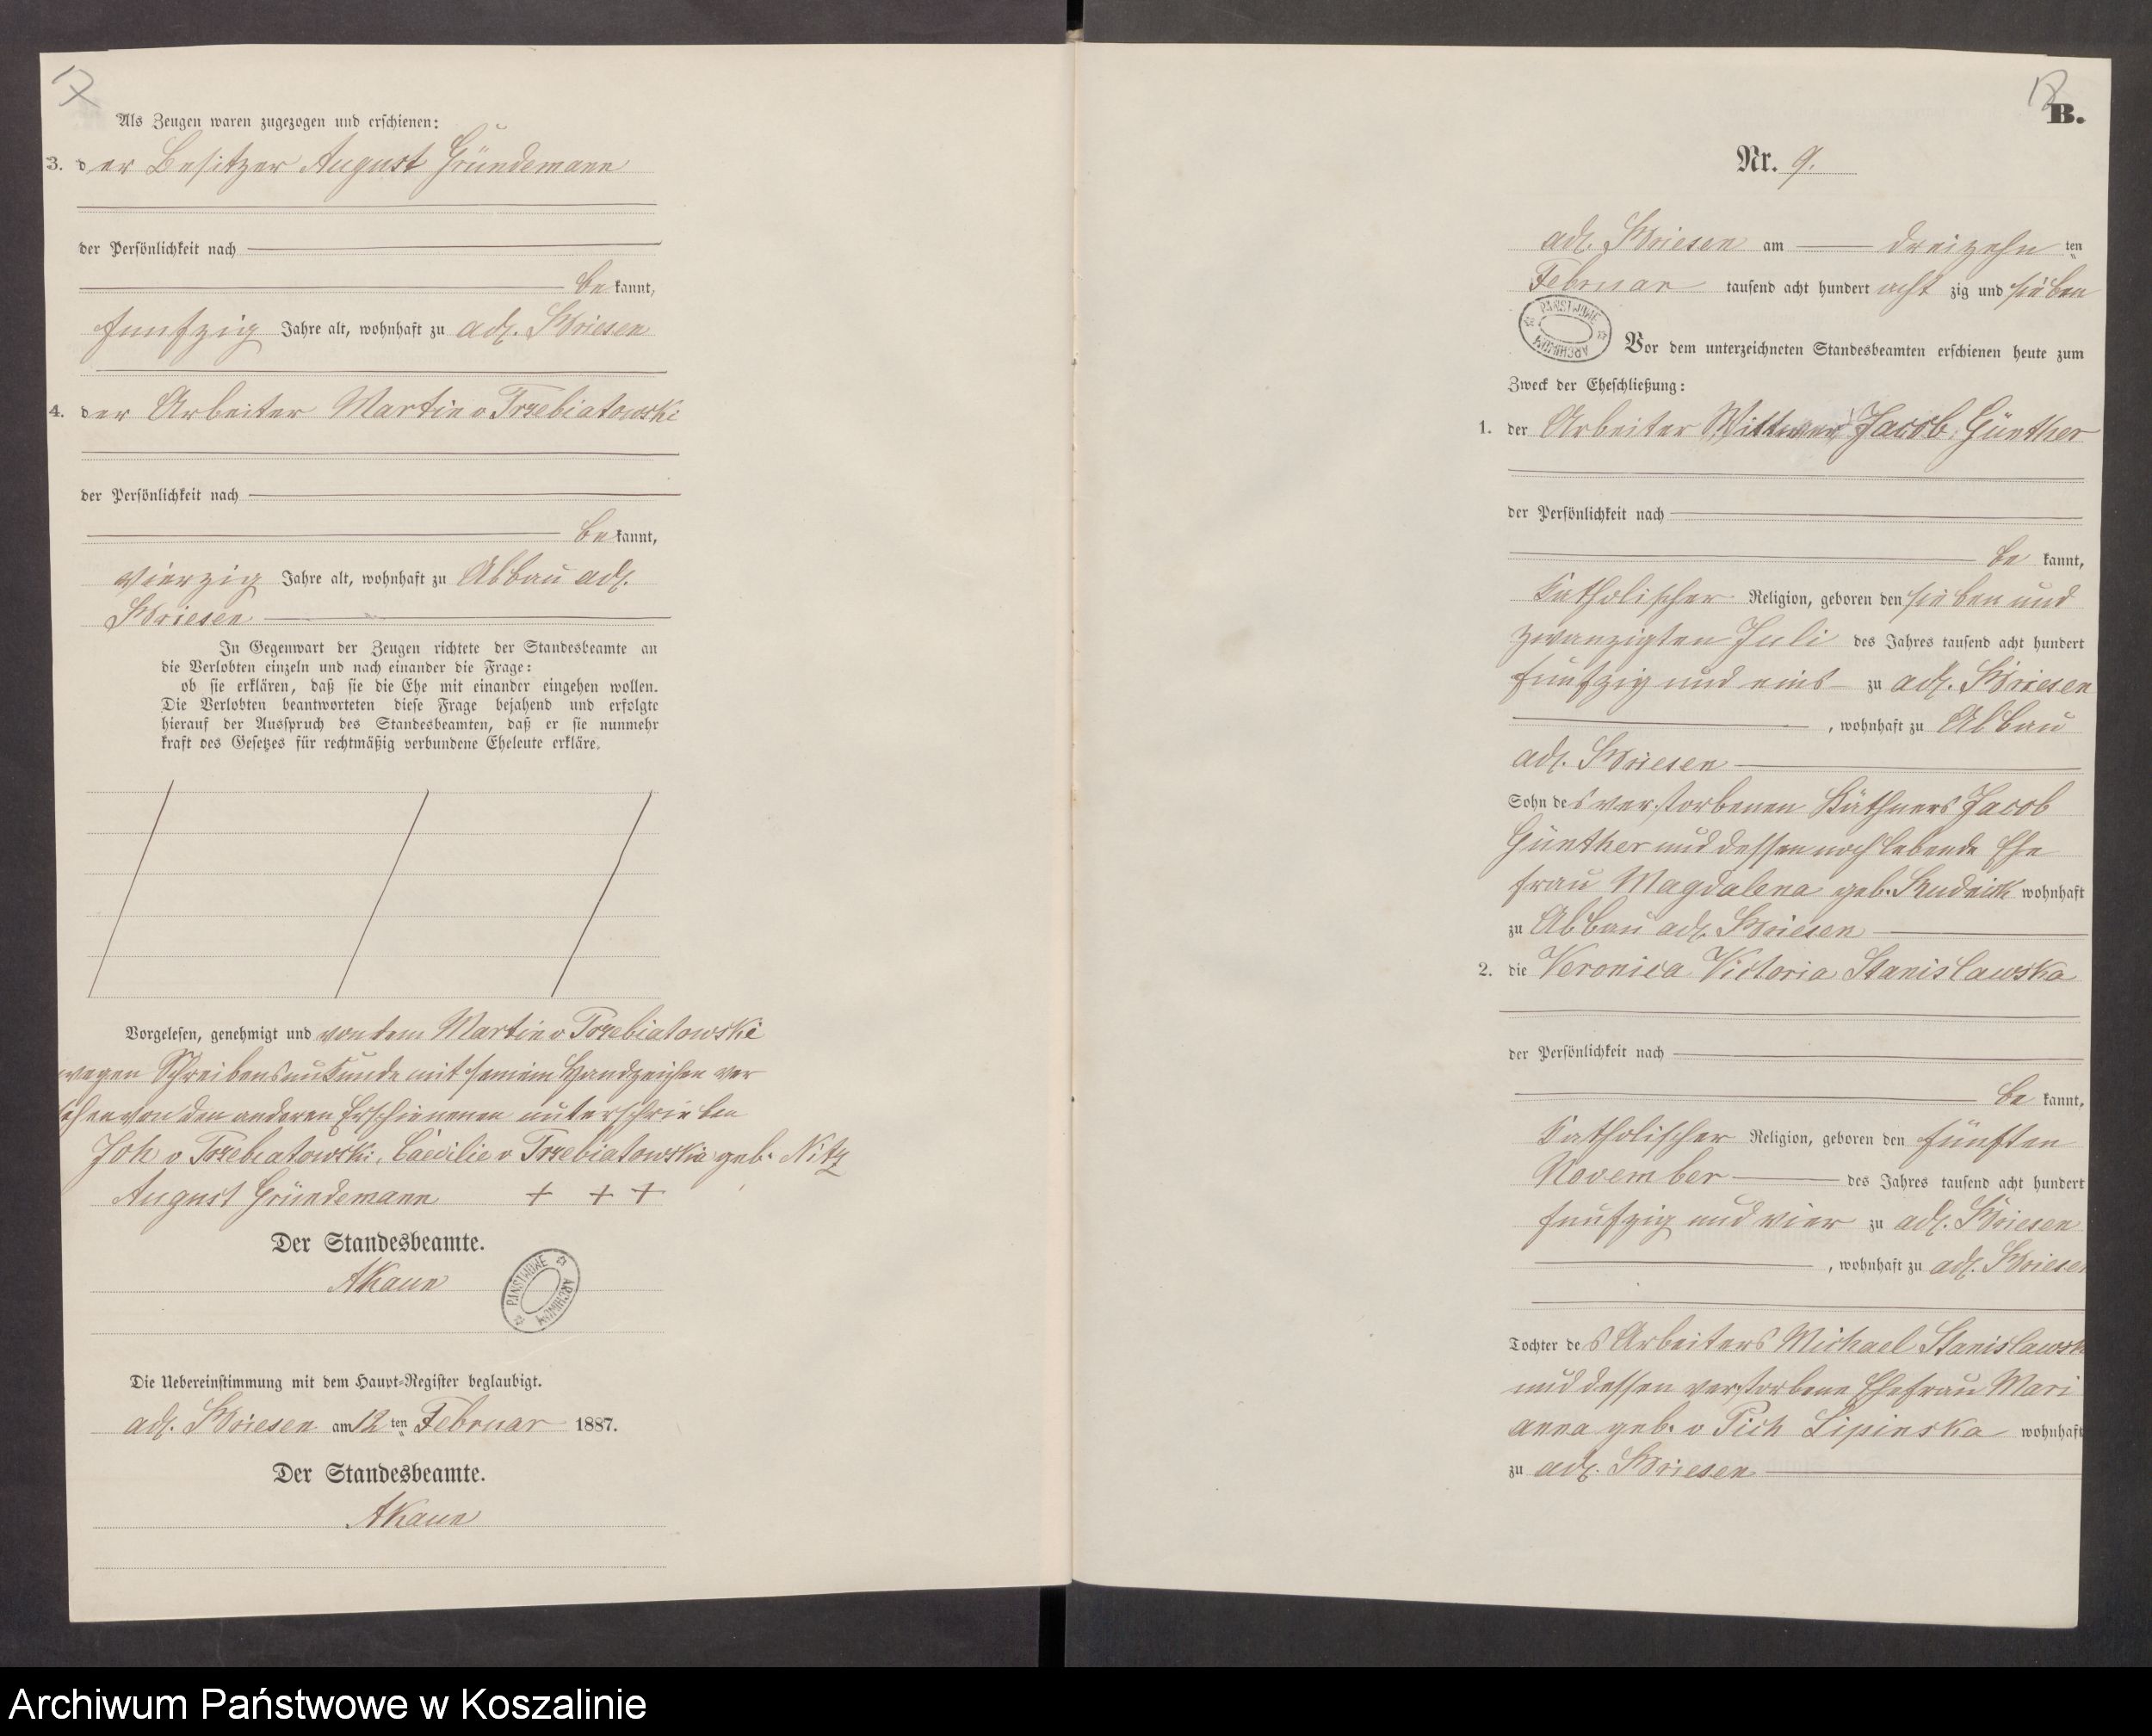 17
Als Zeugen waren zugezogen und erschienen:
3. der Besitzer August Gründemann
der Persönlichkeit nach
bekannt,
funfzig Jahre alt, wohnhaft zu adl. Briesen
4. der Arbeiter Martin v Trzebiatowski
der Persönlichkeit nach
bekannt,
vierzig Jahre alt, wohnhaft zu Abbau adl.
Briesen
In Gegenwart der Zeugen richtete der Standesbeamte an
die Verlobten einzeln und nach einander die Frage:
ob sie erklären, daß sie die Ehe mit einander eingehen wollen.
Die Verlobten beantworteten diese Frage bejahend und erfolgte
hierauf der Ausspruch des Standesbeamten, daß er sie nunmehr
kraft des Gesetzes für rechtmäßig verbundene Eheleute erkläre.
Vorgelesen, genehmigt und von dem Martin v Trzebiatowski
wegen Schreibensunkunde mit seinem Handzeichen ver
sehen von den anderen Erschienenen unterschrieben
Joh v Trzebiatowski, Caecilie v Trzebiatowska geb. Nitz
August Gründemann + + +
Der Standesbeamte.
PAŃSTWOWE ARCHIWUM
Die Uebereinstimmung mit dem Haupt-Register beglaubigt.
adl. Briesen am 12ten Februar 1887.
Der Standesbeamte.
B.
Nr. 9.
adl. Briesen am dreizehnten
Februar tausend acht hundert achtzig und sieben
PAŃSTWOWE ARCHIWUM
Vor dem unterzeichneten Standesbeamten erschienen heute zum
Zweck der Eheschließung:
1. der Arbeiter Wittwer Jacob Günther
der Persönlichkeit nach
bekannt,
katholischer Religion, geboren den sieben und
zwanzigten Juli des Jahres tausend acht hundert
funfzig und eins zu adl. Briesen
, wohnhaft zu Abbau
adl. Briesen
Sohn des verstorbenen Käthners Jacob
Günther und dessen noch lebende Ehe
frau Magdalena geb. Rudnick wohnhaft
zu Abbau adl. Briesen
2. die Veronica Victoria Stanislawska
der Persönlichkeit nach
bekannt,
katholischer Religion, geboren den fünften
November des Jahres tausend acht hundert
funfzig und vier zu adl. Briesen
, wohnhaft zu adl. Briesen
Tochter des Arbeiters Michael Stanislawsk
und dessen verstorbene Ehefrau Mari
anna geb. v Pich Lipinska wohnhaft
zu adl. Briesen
Archiwum Państwowe w Koszalinie